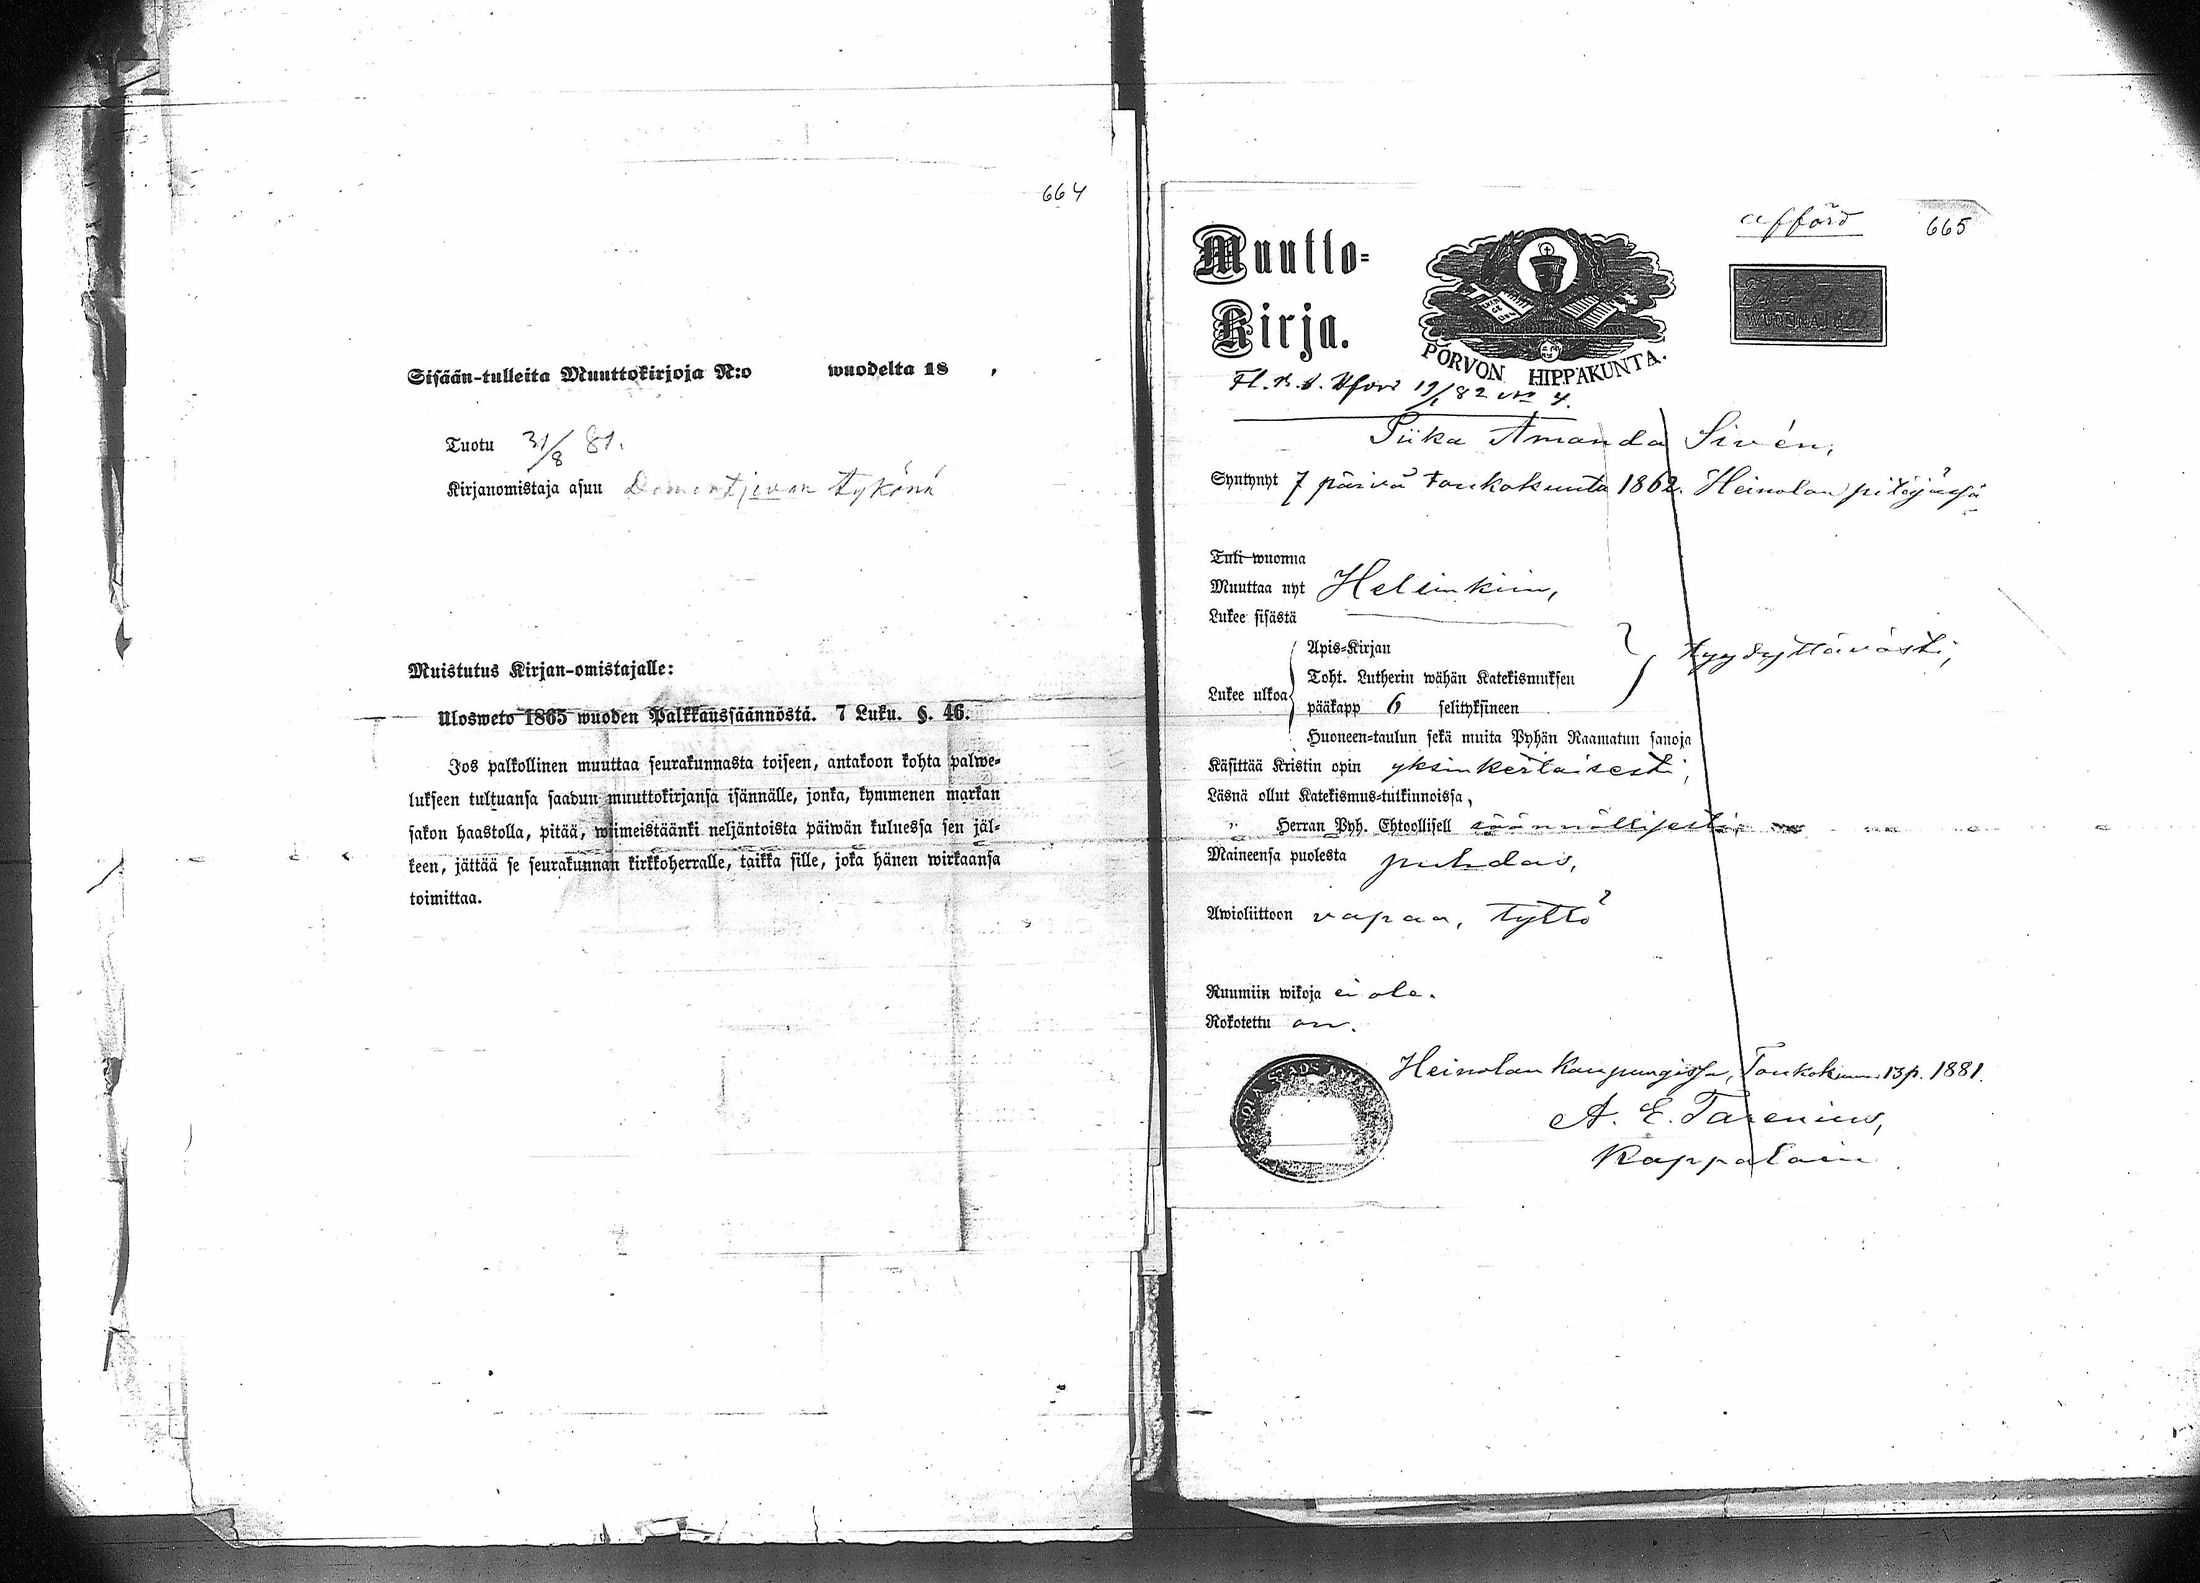 664
Sisään-tulleita Muuttokirjoja N:o wuodelta 18 ,
Tuotu 31/8 81.
Kirjanomistaja asuu tykönä
Muistutus Kirjan-omistajalle:
Ulosweto 1865 wuoden Palkkaussäännöstä. 7 Luku. §. 46.
Jos palkollinen muuttaa seurakunnasta toiseen, antakoon kohta palwe-
lukseen tultuansa saadun muuttokirjansa isännälle, jonka, kymmenen markan
sakon haastolla, pitää, wiimeistäänki neljäntoista päiwän kuluessa sen jäl-
keen, jättää se seurakunnan kirkkoherralle, taikka sille, joka hänen wirkaansa
toimittaa.
afförd 665
Muutto-
Kirja.
PORVON HIPPAKUNTA.
WUONNA
19/1 82 No 4.
Piika Amanda Sivén,
Syntynyt 7 päivä toukokuuta 1862. Heinolan pitäjässä
Tuli wuonna
Muuttaa nyt Helsinkiin,
Lukee sisästä
Apis-Kirjan tyydyttävästi,
Toht. Lutherin wähän Katekismuksen
Lukee ulkoa
pääkapp 6 selityksineen
Huoneen-taulun sekä muita Pyhän Raamatun sanoja
Käsittää Kristin opin yksinkertaisesti,
Läsnä ollut Katekismus-tutkinnoissa,
" Herran Pyh. Ehtoollisell säännöllisesti
Maineensa puolesta puhdas,
Awioliittoon vapaa, tyttö
Ruumiin wikoja ei ole.
Rokotettu on.
Heinolan Kaupungissa, Toukokuun 13 p. 1881.
A. E. Tarenius,
Kappalain